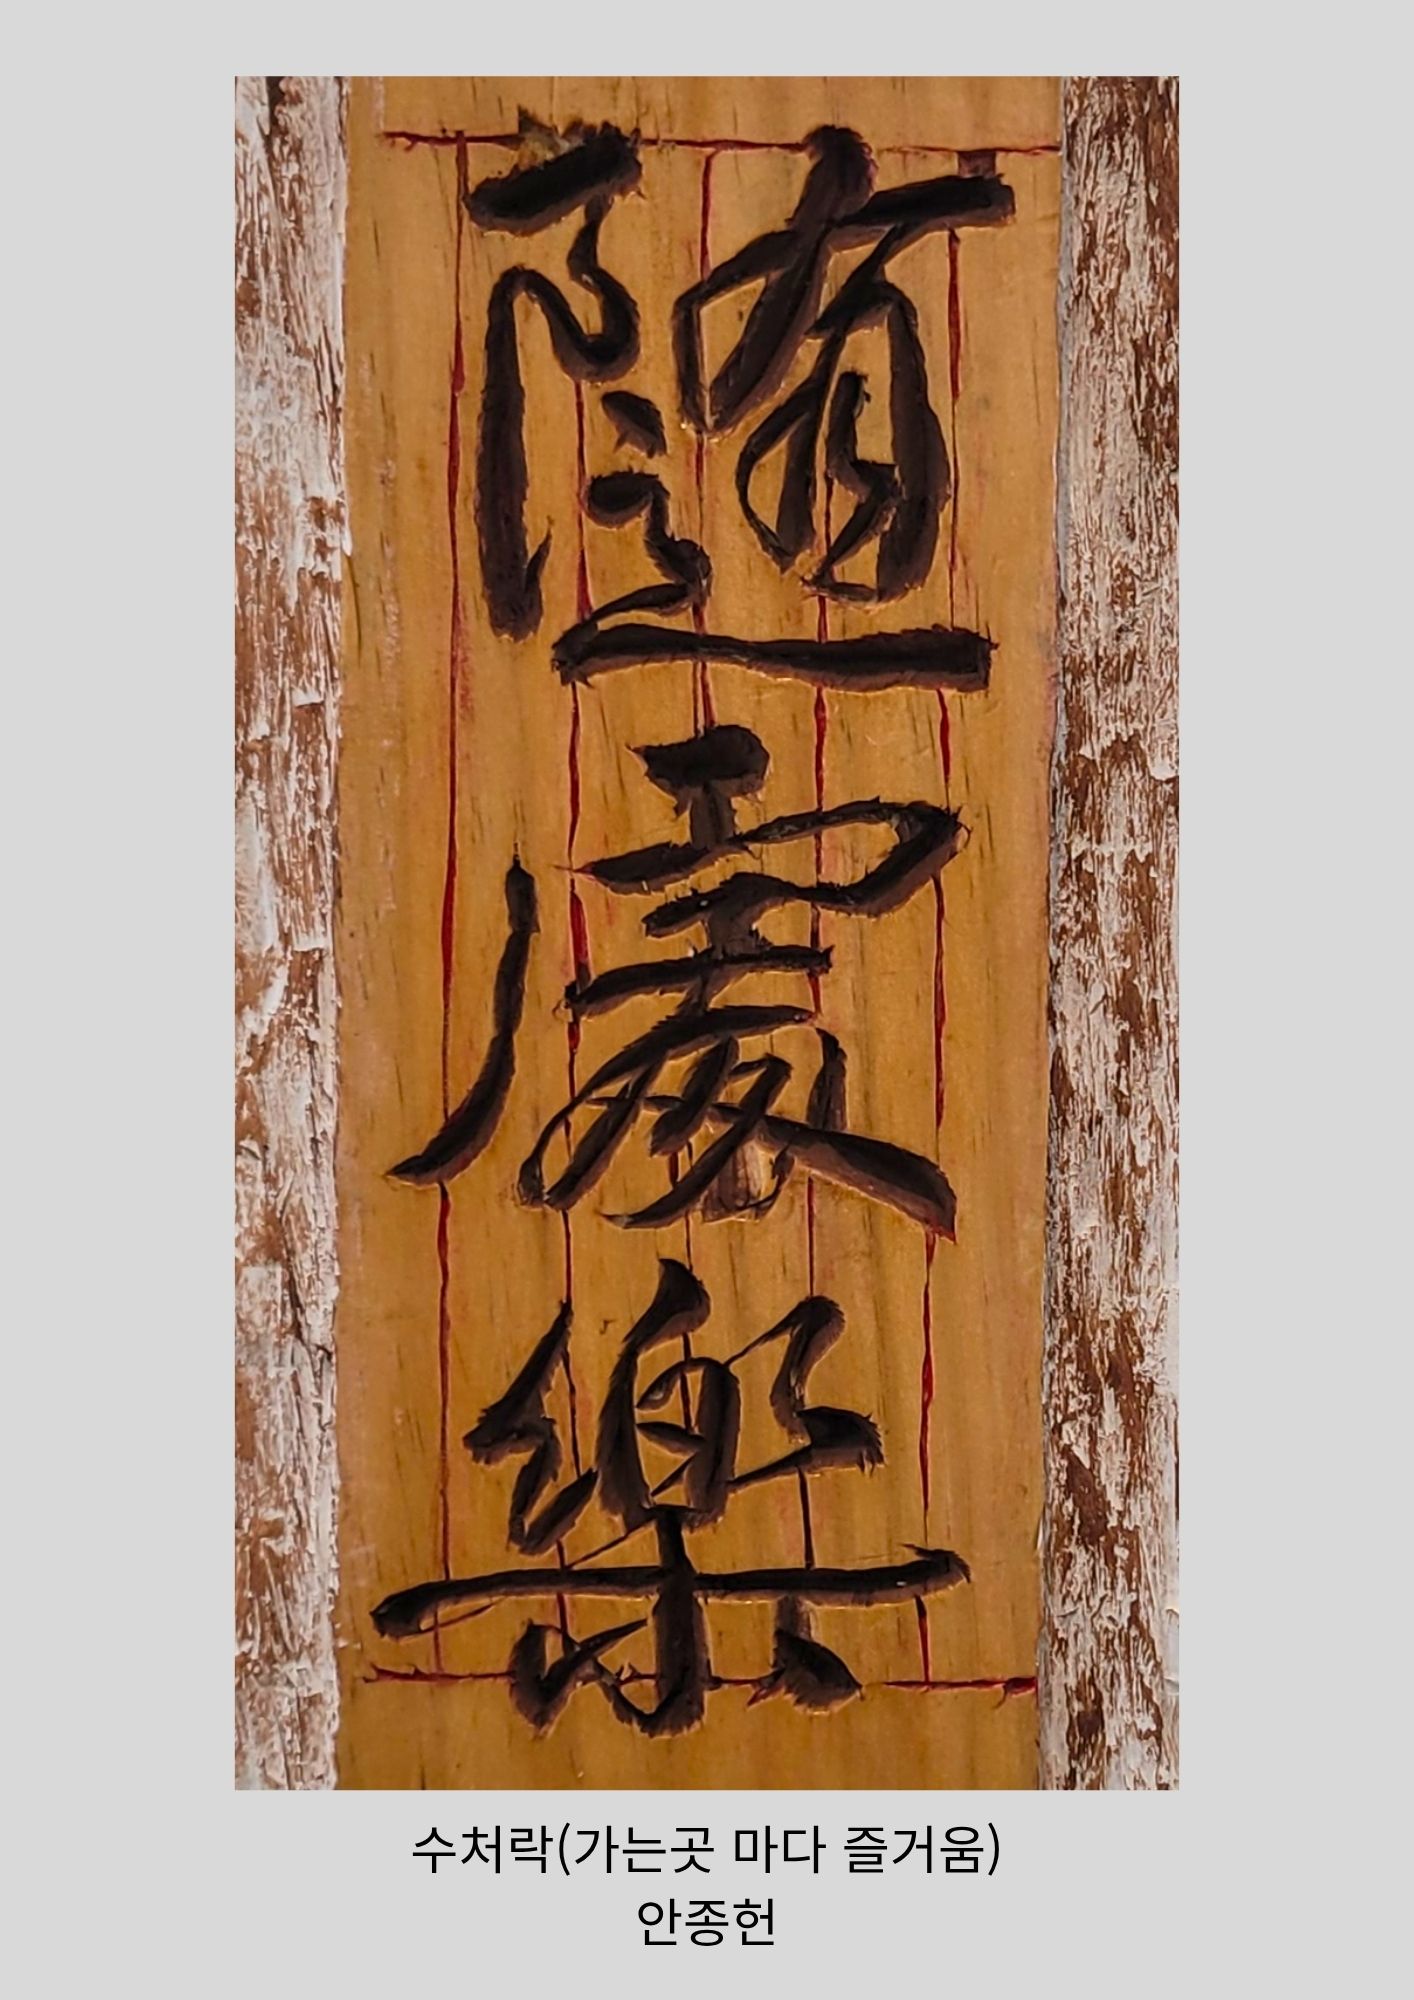 隨
處
樂
수처락(가는곳 마다 즐거움)
안종헌